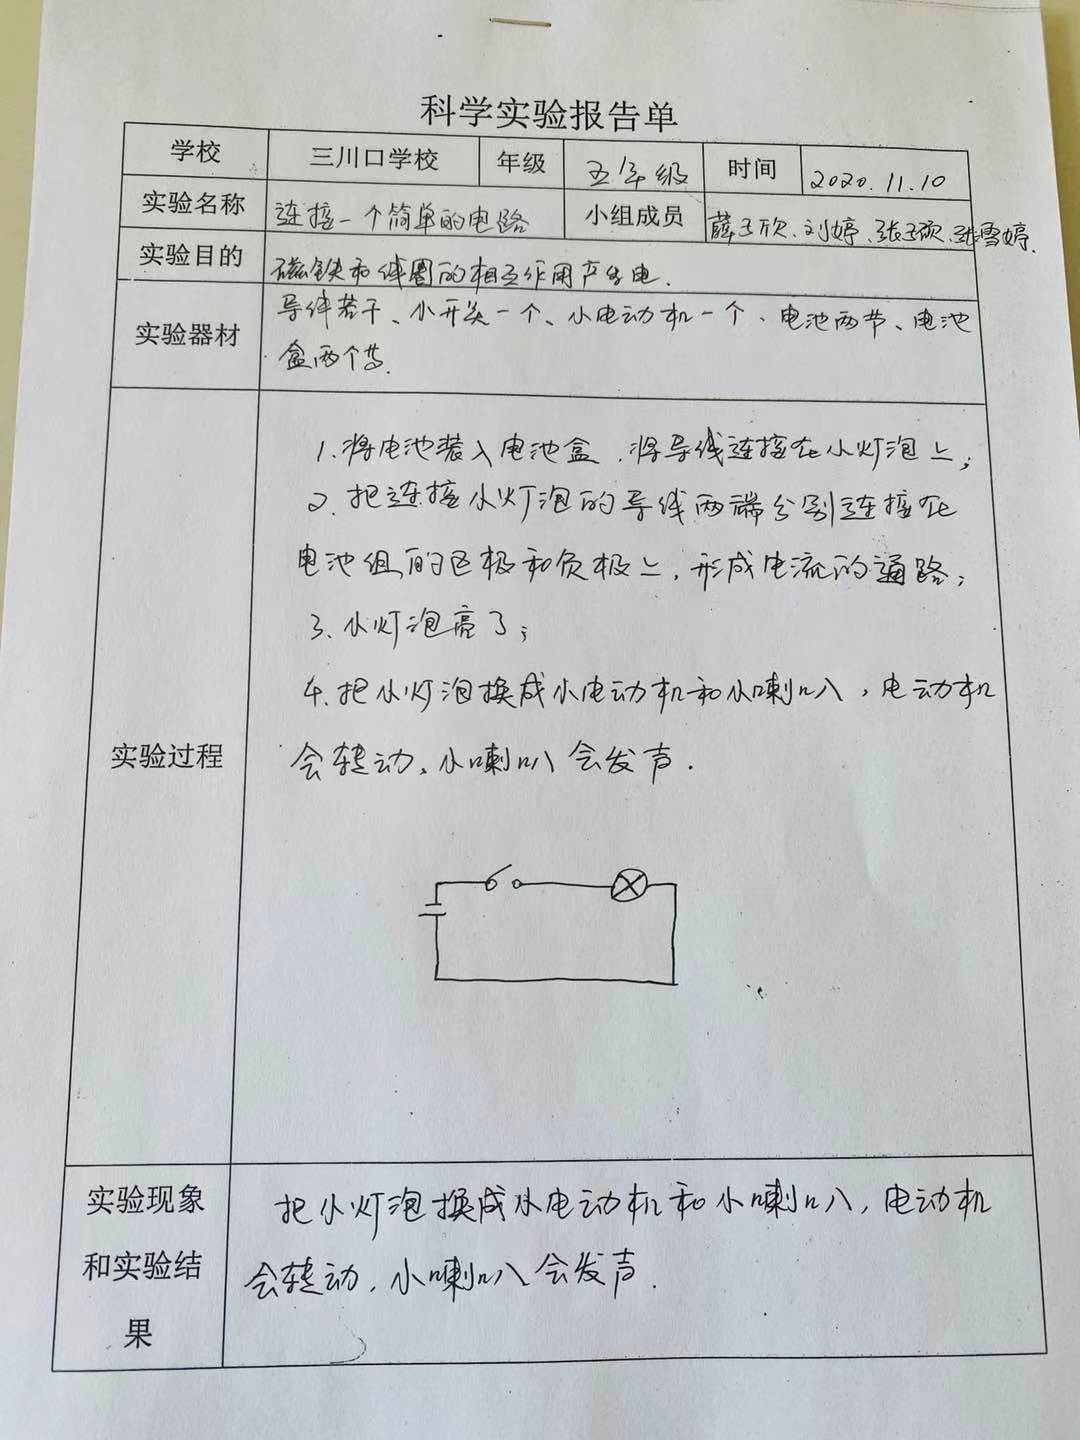 科学实验报告单
学校 三川口学校 年级 五年级 时间 2020.11.10
实验名称 连接一个简单的电路 小组成员 薛子欣、刘婷、张雪婷.
实验目的 磁铁和线圈的相互作用产生电.
实验器材 导线若干、小开关一个、小电动机一个、电池两节、电池
盒两个等.
实验过程
1.将电池装入电池盒.将导线连接在小灯泡上;
2.把连接小灯泡的导线两端分别连接在
电池组的正极和负极上,形成电流的通路;
3、小灯泡亮了;
4.把小灯泡换成小电动机和小喇叭,电动机
会转动、小喇叭会发声.
实验现象
和实验结
果
把小灯泡换成小电动机和小喇叭,电动机
会转动,小喇叭会发声.